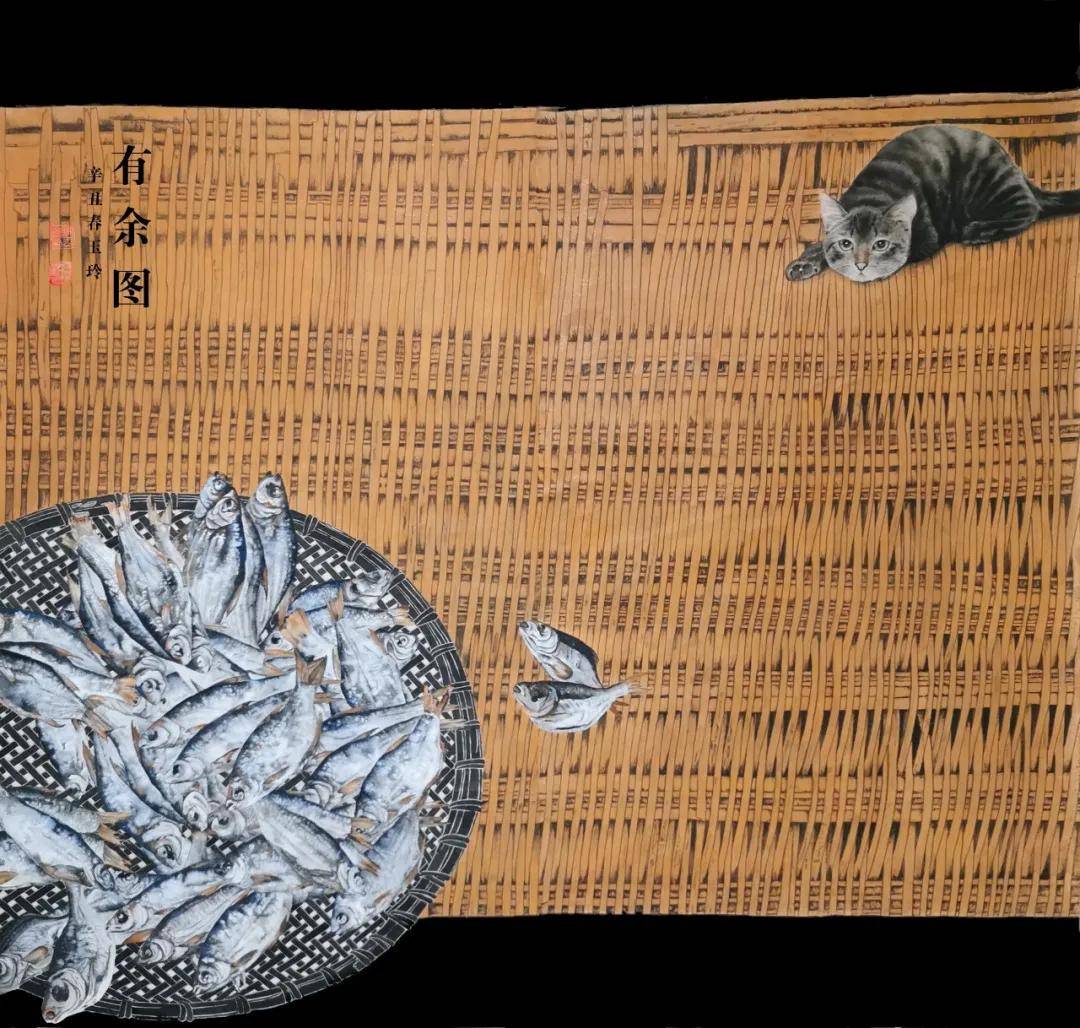 有余图
辛丑春玉玲